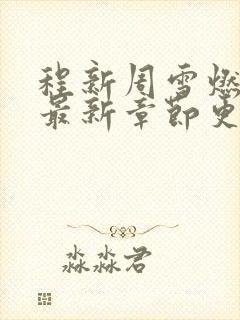 程新周雪燃
最新章节更
淼淼君